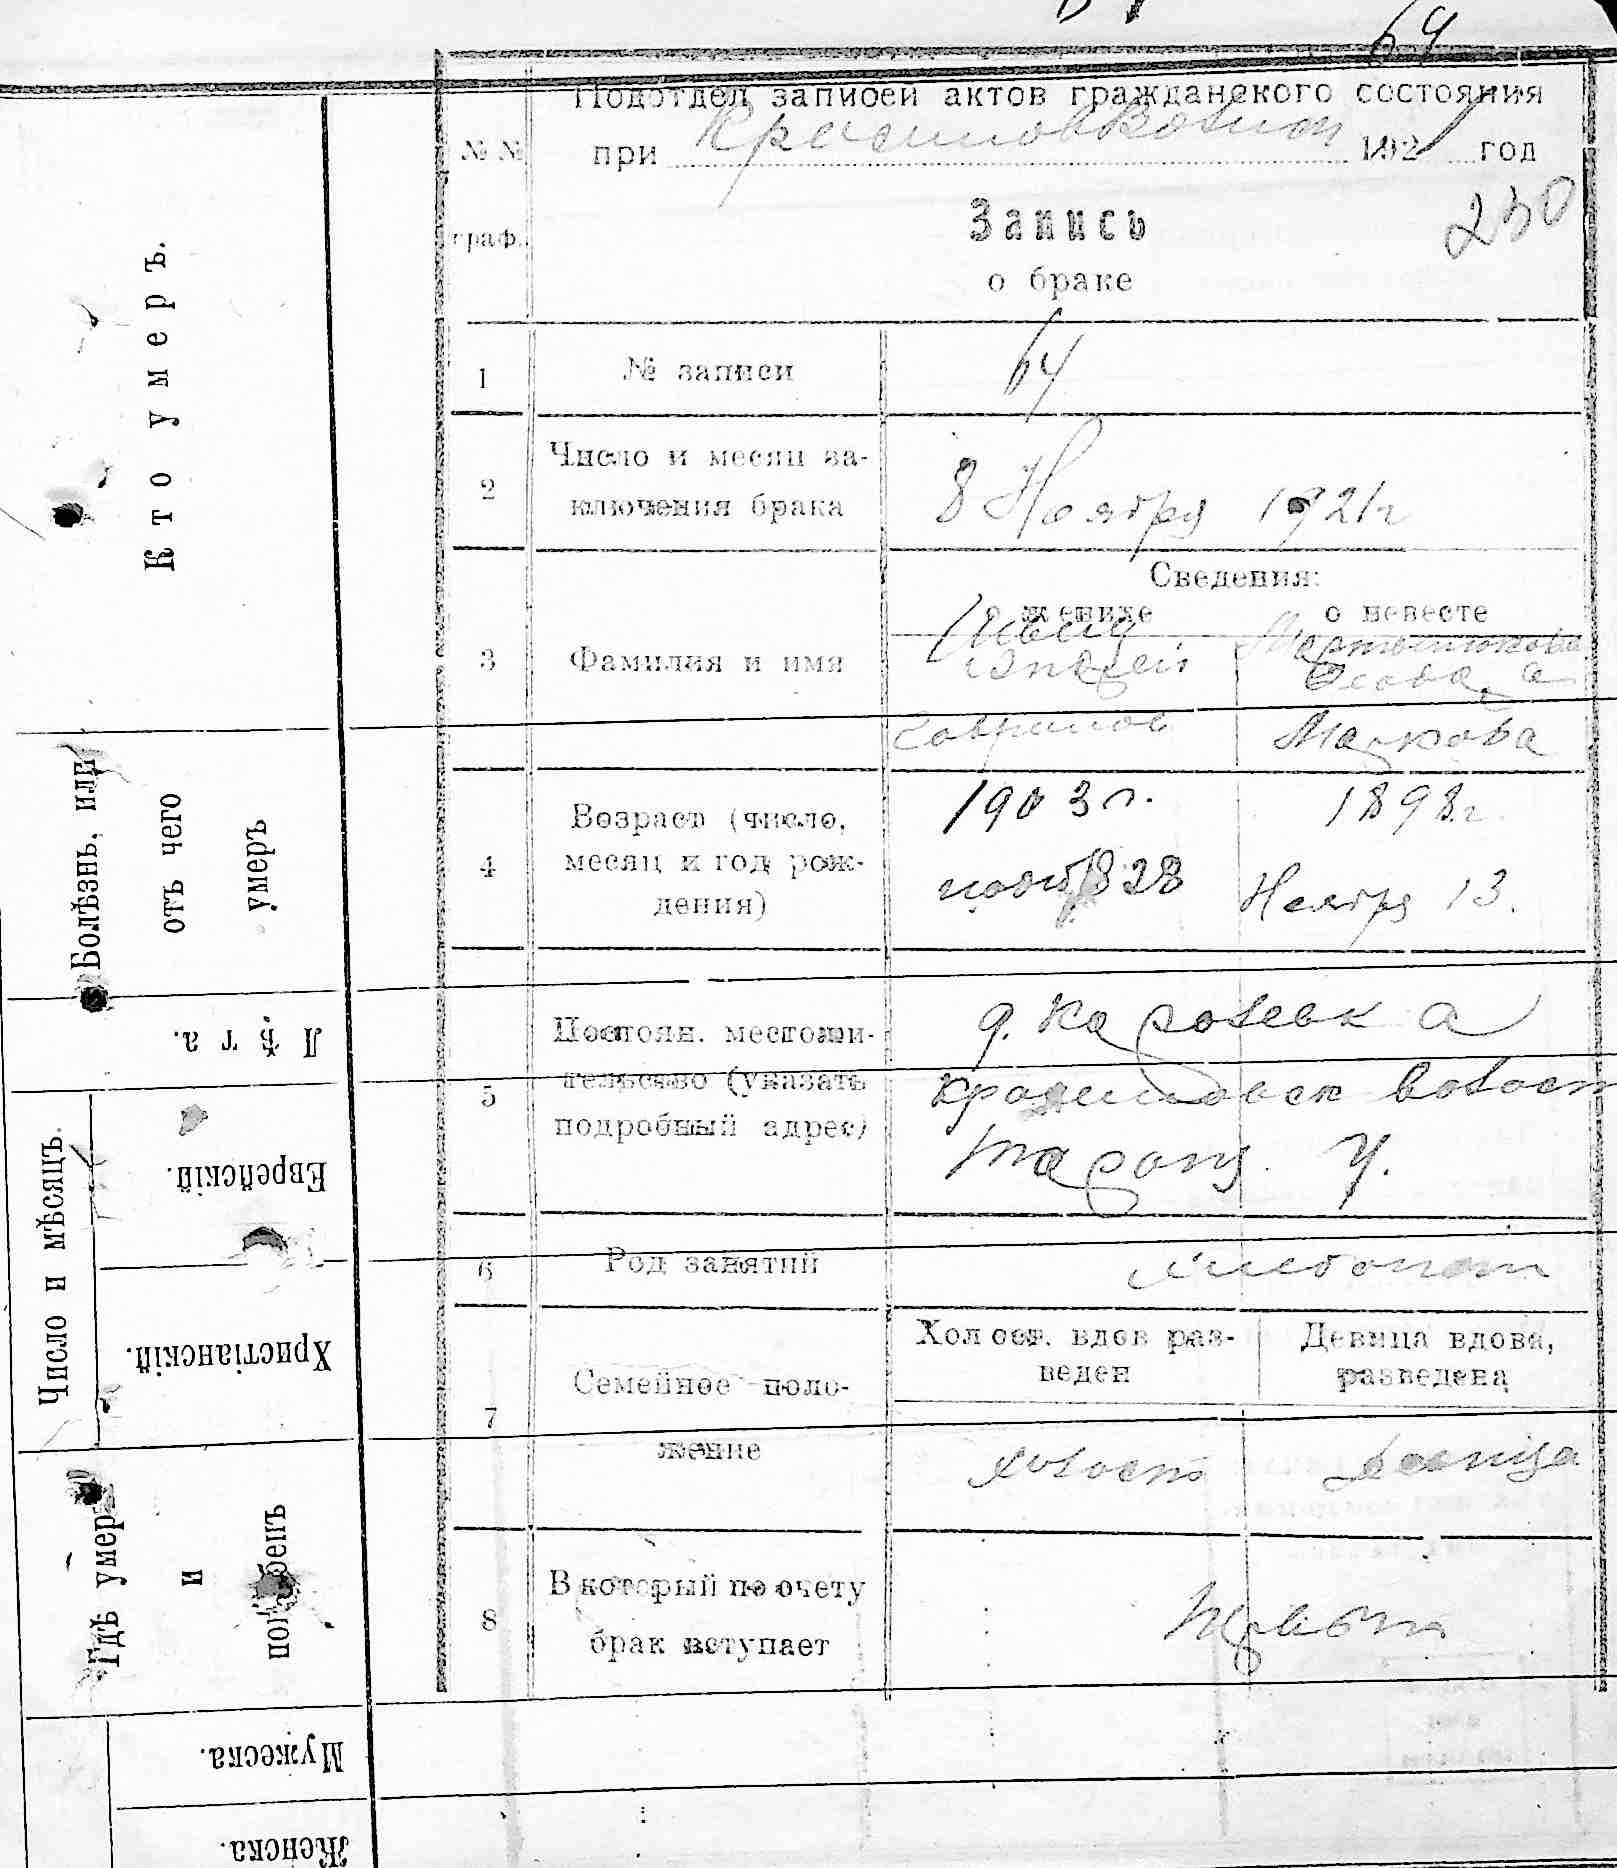 64
Подотдел записей актов гражданского состояния
№ №
при 1921 год
Запись
230
граф.
о браке
1
№ записи
64
2
Число и месяц за-
ключения брака
8 Ноября 1921 г
Сведения:
женихе
о невесте
3
Фамилия и имя
Швец
Андрей
Гаврилов
Мартынюкова
Маркова
4
Возраст (число,
месяц и год рож-
дения)
1903 г.
28
1898 г.
Ноября 13.
5
Постоян. местожи-
тельство (указать
подробный адрес)
д.
Таращ. У.
6
Род занятий
хлебопаш
7
Семейное поло-
жение
Холост. вдов раз-
веден
Девица вдова,
разведена
холост
девица
8
В который по счету
брак вступает
Кто умеръ.
Болѣзнь, или
отъ чего
умеръ
Лѣта.
Число и мѣсяцъ.
Еврейскій.
Христіанскій.
Гдѣ умеръ
и
погребенъ
Мужеска.
Женска.